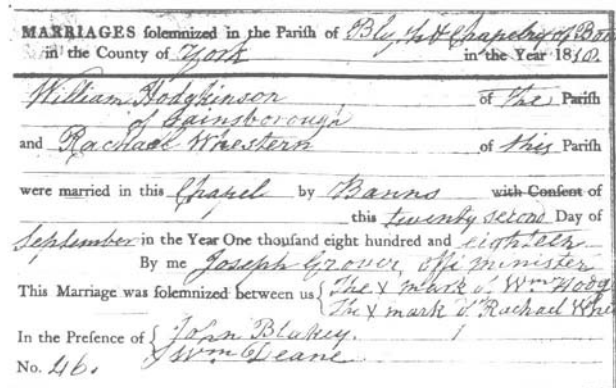 MARRIAGES solemnized in the Parish of Blyth & Chapelry of Baw
in the County of York in the Year 1818.
William Hodgkinson of The Parish
of Gainsborough
and Rachael Whestern of this Parish
were married in this Chapel by Banns with Consent of
this twenty second Day of
September in the Year One thousand eight hundred and eighteen
By me Joseph Grover, offi minister
This Marriage was solemnized between us { The X mark of Wm Hodg
The X mark of Rachael Whe
In the Presence of { John Blakey.
Wm Deane.
No. 46.